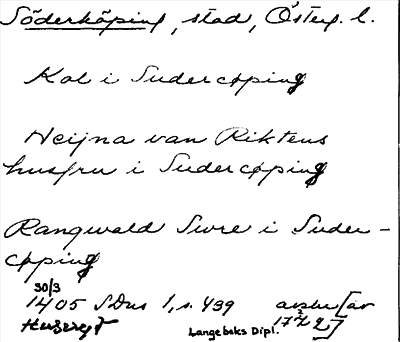 Söderköping, stad, Österg. l.
Kol i Sudercøping
Heijna van Riktens
husfru i Sudercøping
Rangwald Swre i Suder-
cøping
30/3
1405 SDns 1, s. 439 avskr [av
Langebeks Dipl.